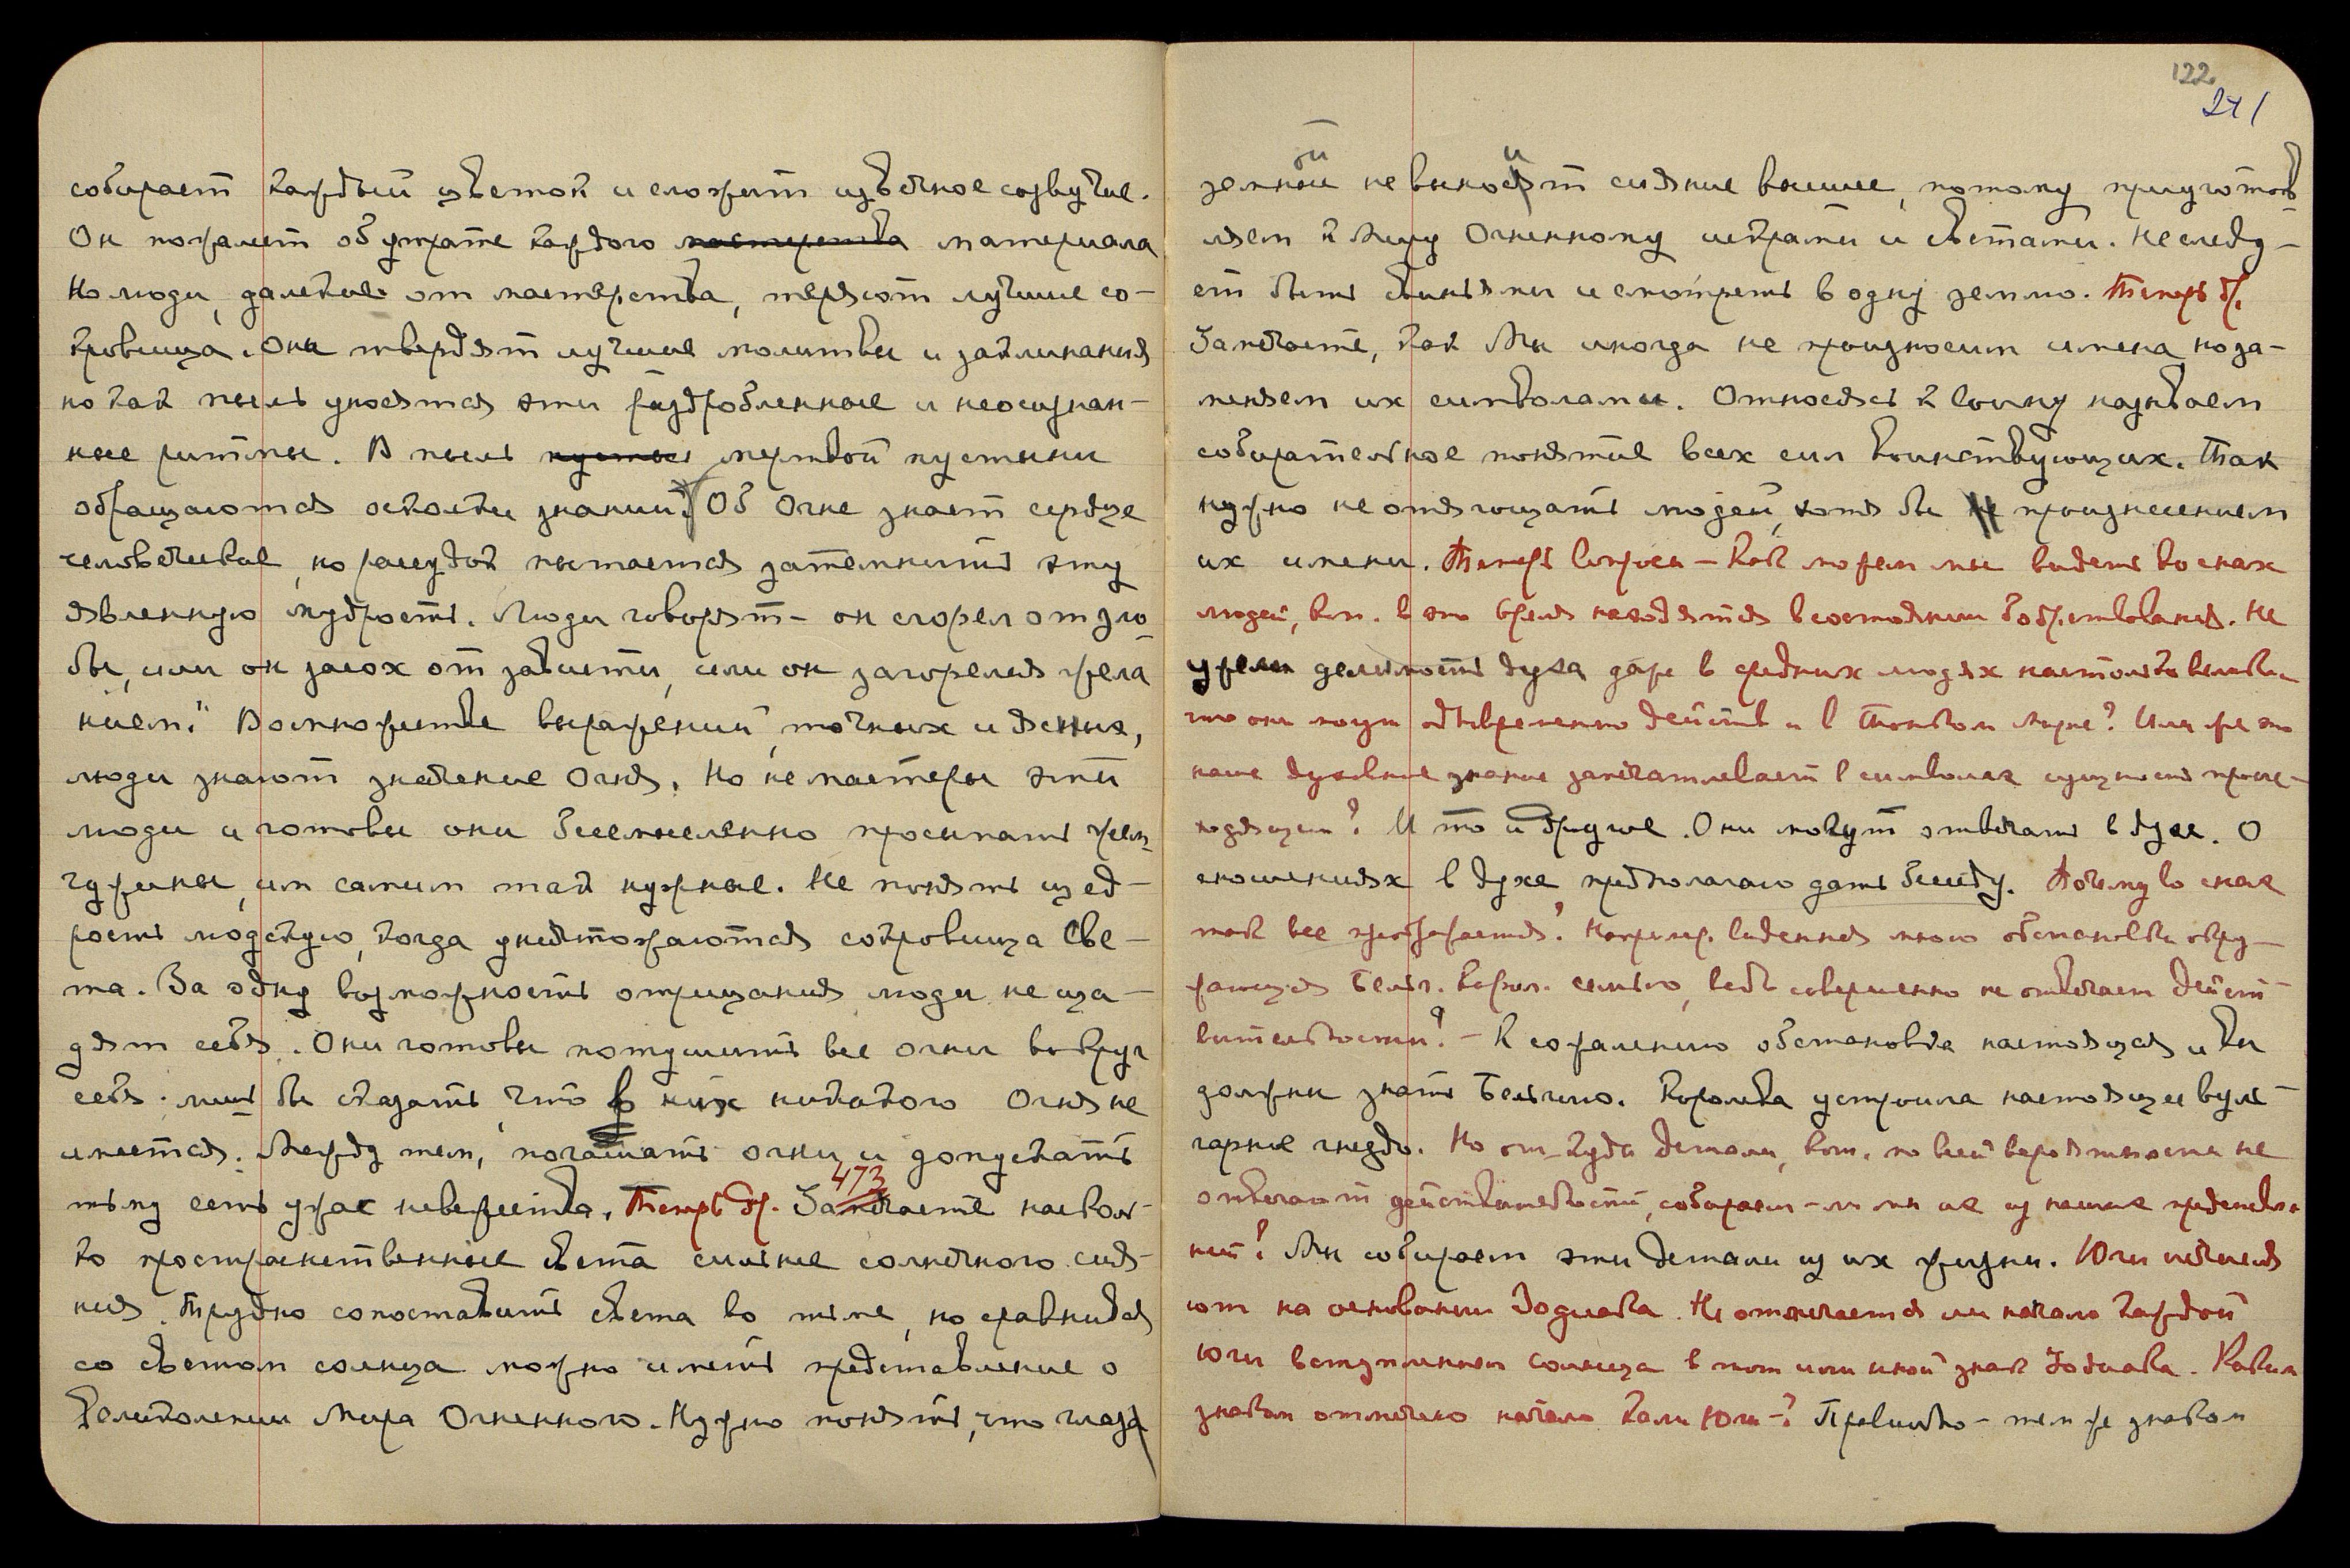 собирает каждый цветок и сложит извечное созвучие.
Он пожалеет об утрате каждого мастерства материала
Но люди, далекие от мастерства, теряют лучшие со-
кровища. Они твердят лучшие молитвы и заклинания
но как пыль уносятся эти раздробленные и неосознан-
ные ритмы. В пыль мертвой пустыни
обращаются осколки знаний. Об Огне знает сердце
человеческое, но рассудок пытается затемнить эту
явленную мудрость. Люди говорят – он сгорел от зло-
бы, или он засох от зависти, или он загорелся жела
нием." Во множестве выражений, точных и ясных,
люди знают значение Огня. Но не мастеры эти
люди и готовы они бессмысленно просыпать жем-
чужины, им самим так нужные. Не понять щед-
рость людскую, когда уничтожаются сокровища Све-
та. За одну возможность отрицания люди не ща-
дят себя. Они готовы потушить все огни вокруг
себя. лишь бы сказать, что в них никакого Огня не
имеется. Между тем, погашать огни и допускать
тьму есть ужас невежества. Теперь др. Замечаете насколь-
473
ко пространственные света сильнее солнечного сия-
ния. Трудно сопоставить света во тьме, но сравнивая
со светом солнца можно иметь представление о
Великолепии Мира Огненного. Нужно понять, что глаз
122
241
земной не выносит сияние высшее, потому приуготов-
ляем к Миру Огненному искрами и светами. Не следу-
ет быть свиньями и смотреть в одну землю. Теперь др.
Замечаете, как Мы иногда не произносим имена но за-
меняем их символами. Относясь к Воину называем
собирательное понятие всех сил воинствующих. Так
нужно не отягощать людей, хотя бы произнесением
их имени. Теперь вопросы – Как можем мы видеть во снах
людей, кот. в это время находятся в состоянии бодрствования. Не
ужели делимость духа даже в средних людях настолько велика
что они могут одновременно действ и в Тонком Мире? Или же это
наше духовное знание запечатлевает в символах сущность проис-
ходящего? И то и другое. Они могут отвечать в духе. О
сношениях в духе предполагаю дать беседу. Почему во сне
так все преображается? Например. виденная мною обстановка окру-
жающая Бельг. Корол. семью, ведь совершенно не отвечает дейст-
вительности? – К сожалению обстановка настоящая и Вы
должны знать Бельгию. Королева устроила настоящее вуль-
гарное гнездо. Но от-куда детали, кот. по всей вероятности не
отвечают действительности, собираем-ли мы их из наших представле-
ний? Мы собираем эти детали из их жизни. Юги исчисля
ют на основании Зодиака. Не отмечается ли начало каждой
Юги вступлением Солнца в тот или иной знак Зодиака. Каким
знаком отмечено начало Кали Юги –? Правильно – тем же знаком